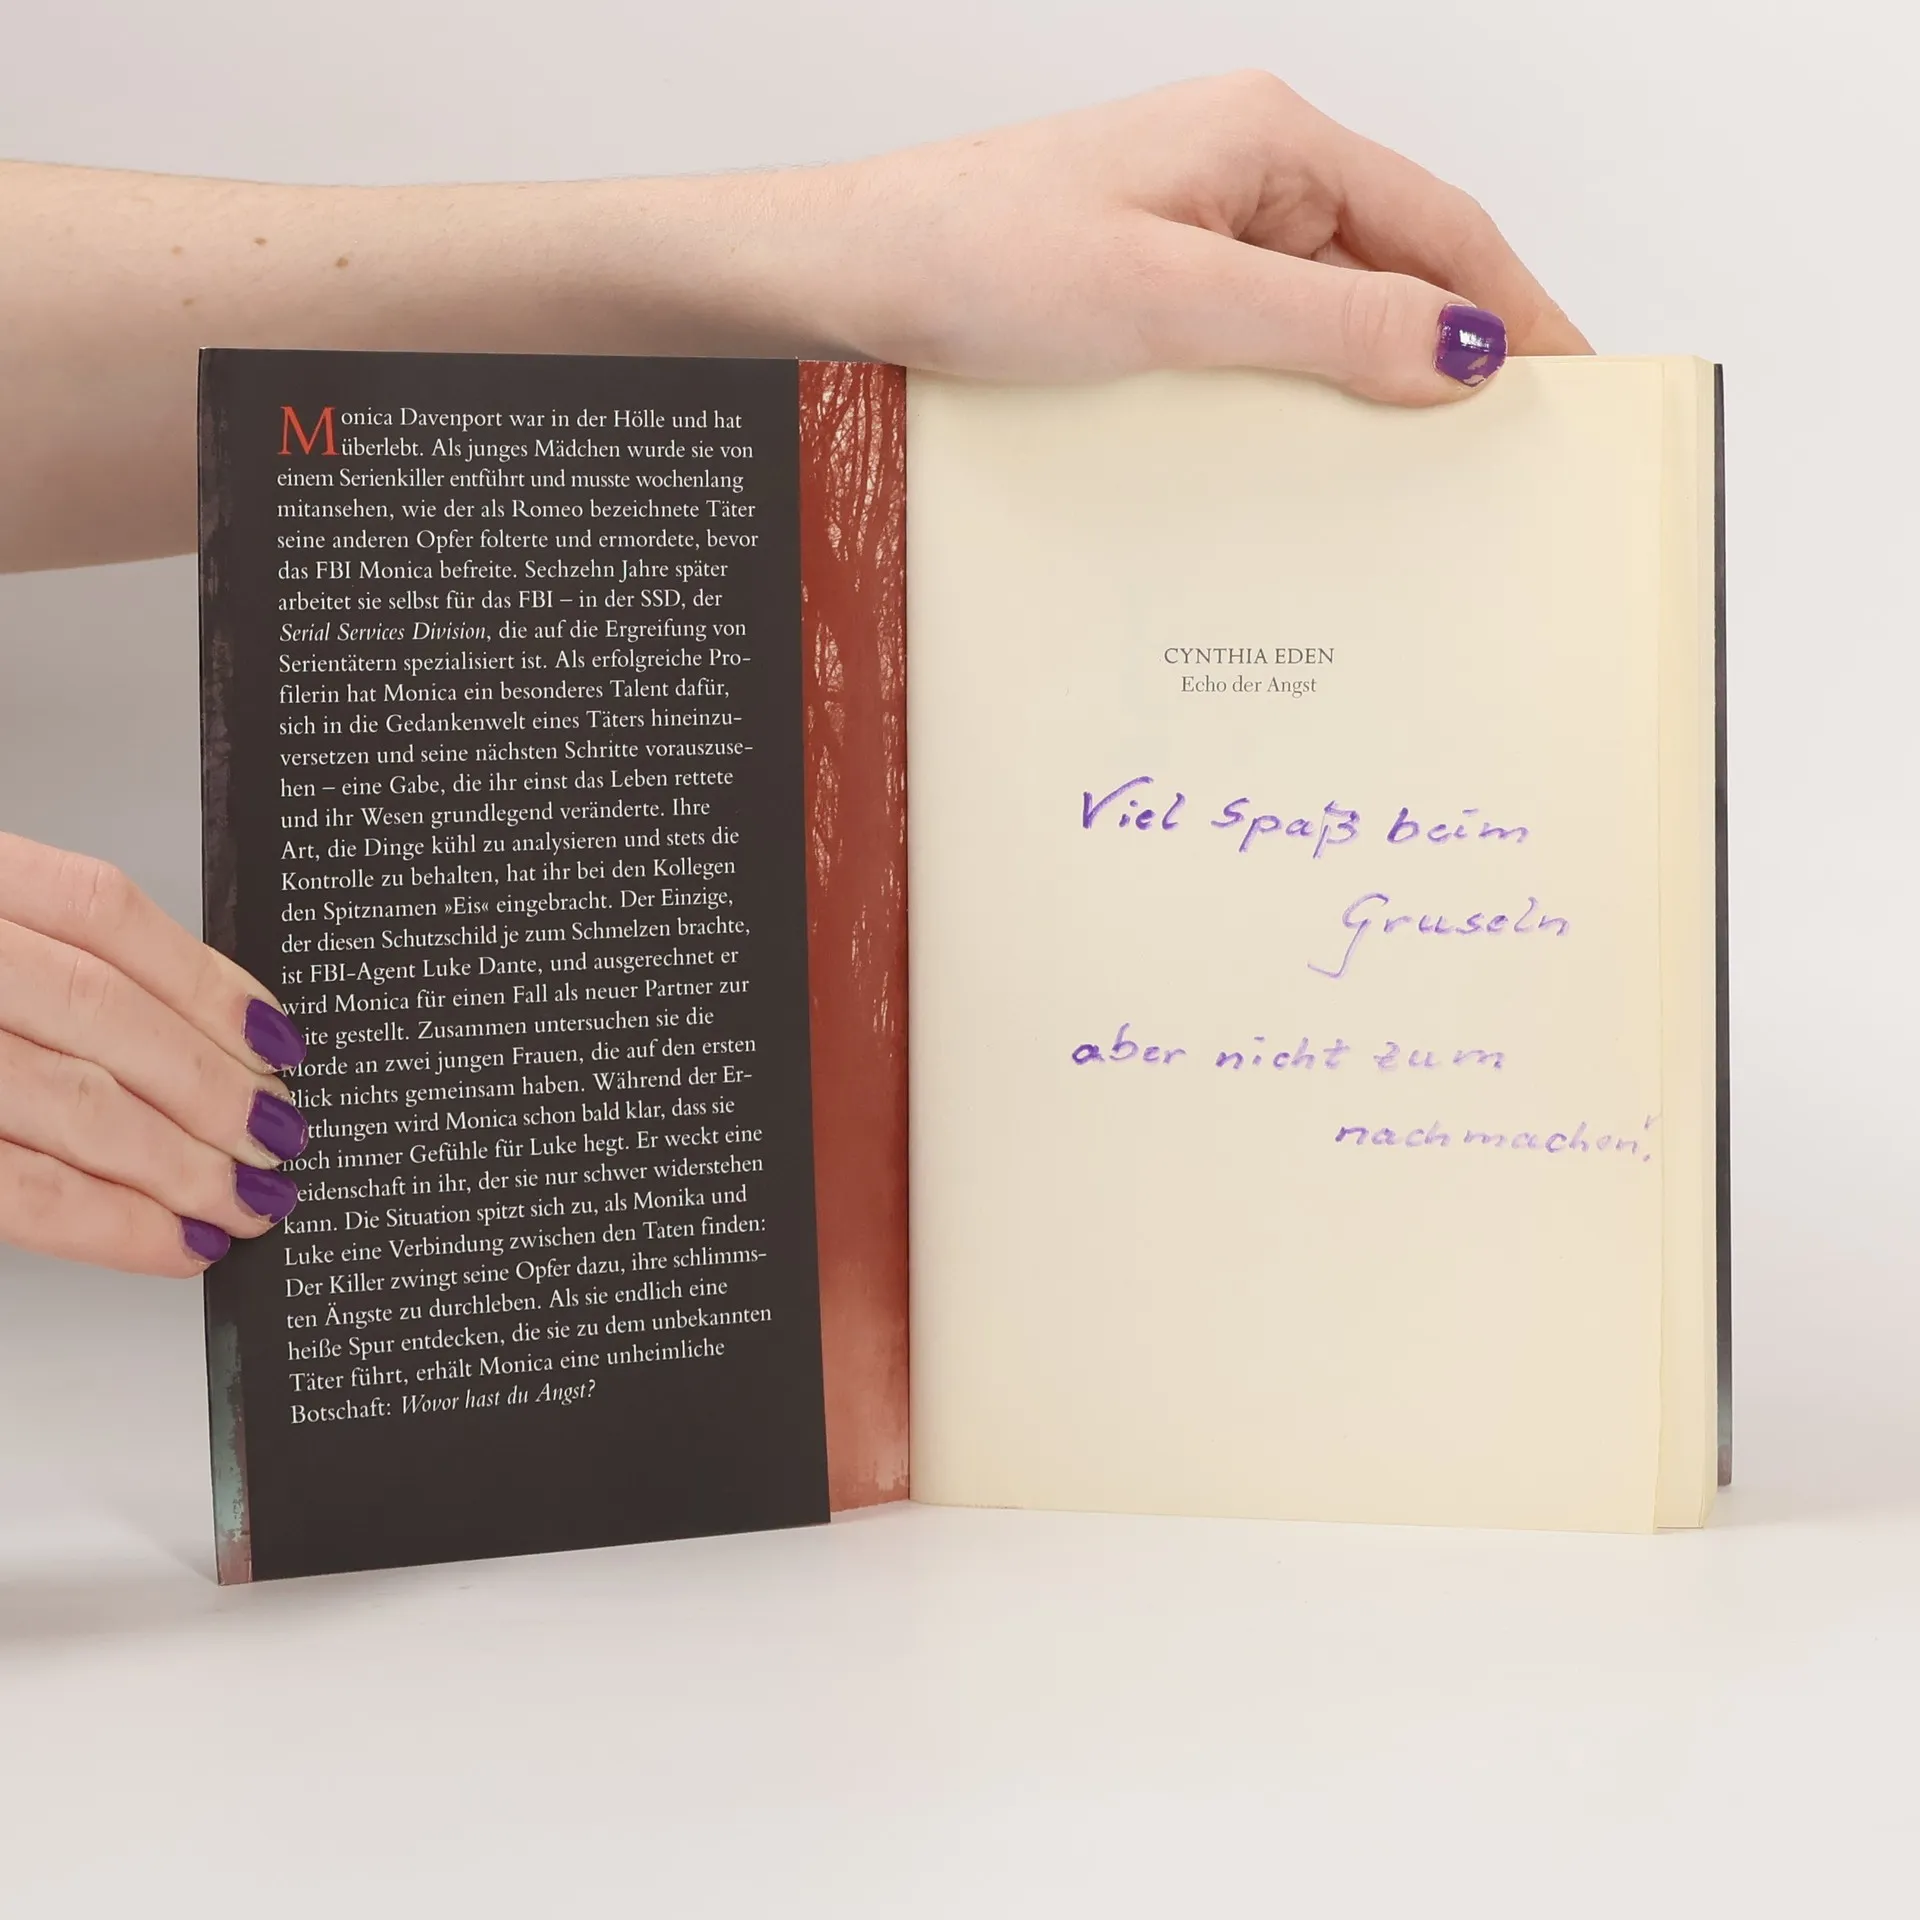 Monica Davenport war in der Hölle und hat
überlebt. Als junges Mädchen wurde sie von
einem Serienkiller entführt und musste wochenlang
mitansehen, wie der als Romeo bezeichnete Täter
seine anderen Opfer folterte und ermordete, bevor
das FBI Monica befreite. Sechzehn Jahre später
arbeitet sie selbst für das FBI – in der SSD, der
Serial Services Division, die auf die Ergreifung von
Serientätern spezialisiert ist. Als erfolgreiche Pro-
filerin hat Monica ein besonderes Talent dafür,
sich in die Gedankenwelt eines Täters hineinzu-
versetzen und seine nächsten Schritte vorauszuse-
hen – eine Gabe, die ihr einst das Leben rettete
und ihr Wesen grundlegend veränderte. Ihre
Art, die Dinge kühl zu analysieren und stets die
Kontrolle zu behalten, hat ihr bei den Kollegen
den Spitznamen »Eis« eingebracht. Der Einzige,
der diesen Schutzschild je zum Schmelzen brachte,
ist FBI-Agent Luke Dante, und ausgerechnet er
wird Monica für einen Fall als neuer Partner zur
ite gestellt. Zusammen untersuchen sie die
Morde an zwei jungen Frauen, die auf den ersten
Blick nichts gemeinsam haben. Während der Er-
ttlungen wird Monica schon bald klar, dass sie
noch immer Gefühle für Luke hegt. Er weckt eine
eidenschaft in ihr, der sie nur schwer widerstehen
kann. Die Situation spitzt sich zu, als Monika und
Luke eine Verbindung zwischen den Taten finden:
Der Killer zwingt seine Opfer dazu, ihre schlimms-
ten Ängste zu durchleben. Als sie endlich eine
heiße Spur entdecken, die sie zu dem unbekannten
Täter führt, erhält Monica eine unheimliche
Botschaft: Wovor hast du Angst?
CYNTHIA EDEN
Echo der Angst
Viel Spaß beim
Gruseln
aber nicht zum
nachmachen!